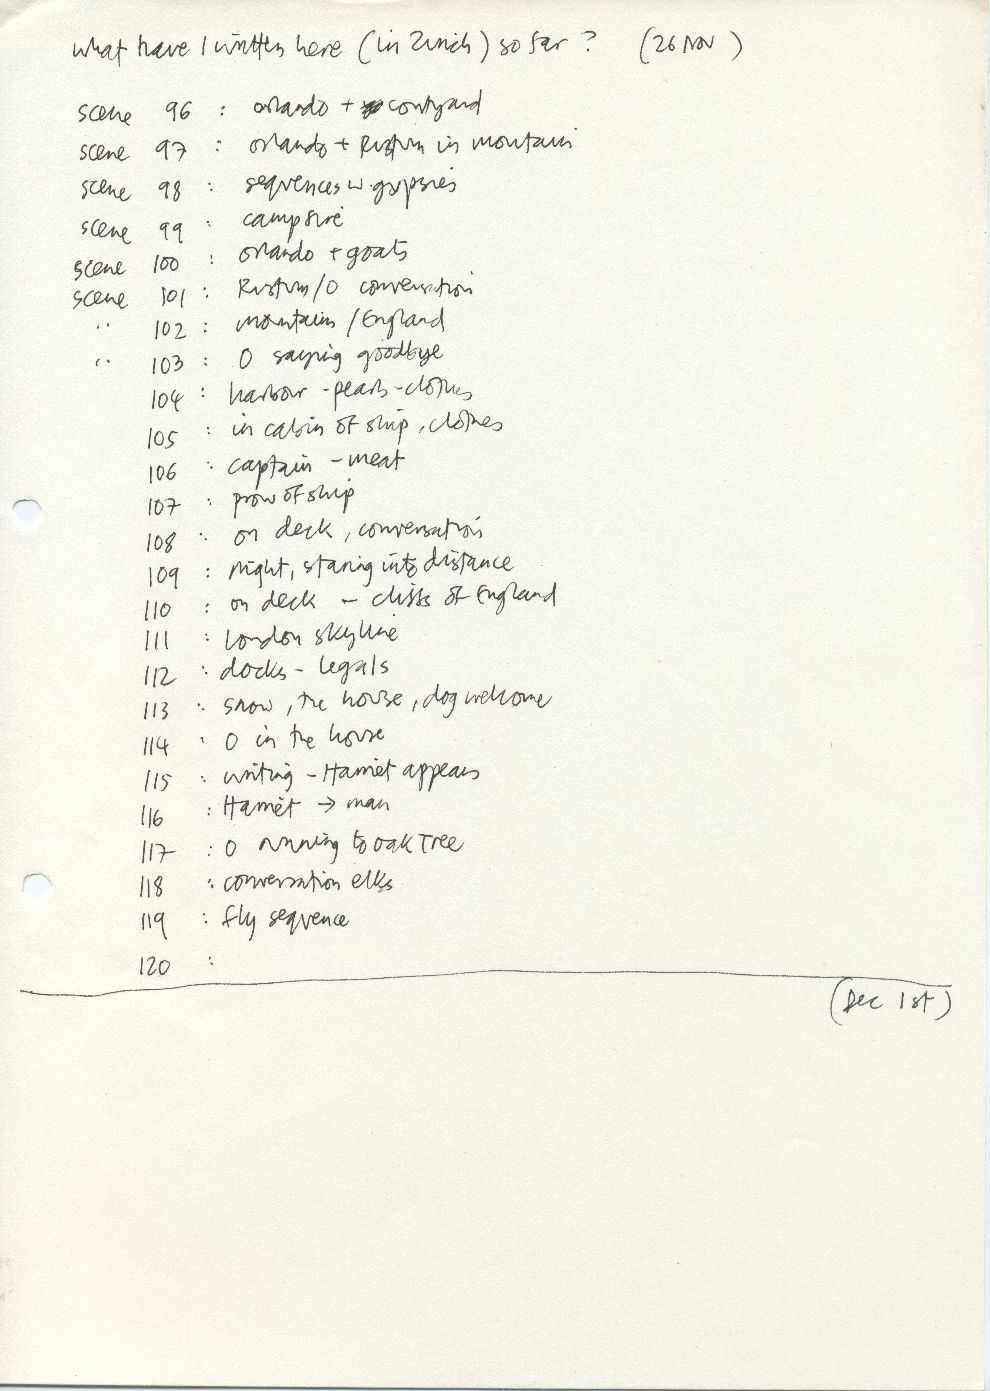 what have I written here (in Zurich) so far ? (26 Nov)
scene 96 : orlando + courtyard
scene 97 : orlando + Rustum in mountain
scene 98 : sequences w gypsies
scene 99 : campfire
scene 100 : orlando + goats
scene 101 : Rustum/O conversation
" 102 : mountains / England
" 103 : O saying goodbye
104 : harbour - pearls - clothes
105 : in cabin of ship, clothes
106 : captain - meat
107 : prow of ship
108 : on deck, conversation
109 : night, staring into distance
110 : on deck - cliffs of England
111 : london skyline
112 : docks - legals
113 : snow, the house, dog welcome
114 : O in the house
115 : writing - Harriet appears
116 : Harriet → man
117 : O running to oak Tree
118 : conversation elks
119 : fly sequence
120 :
(Dec 1st)